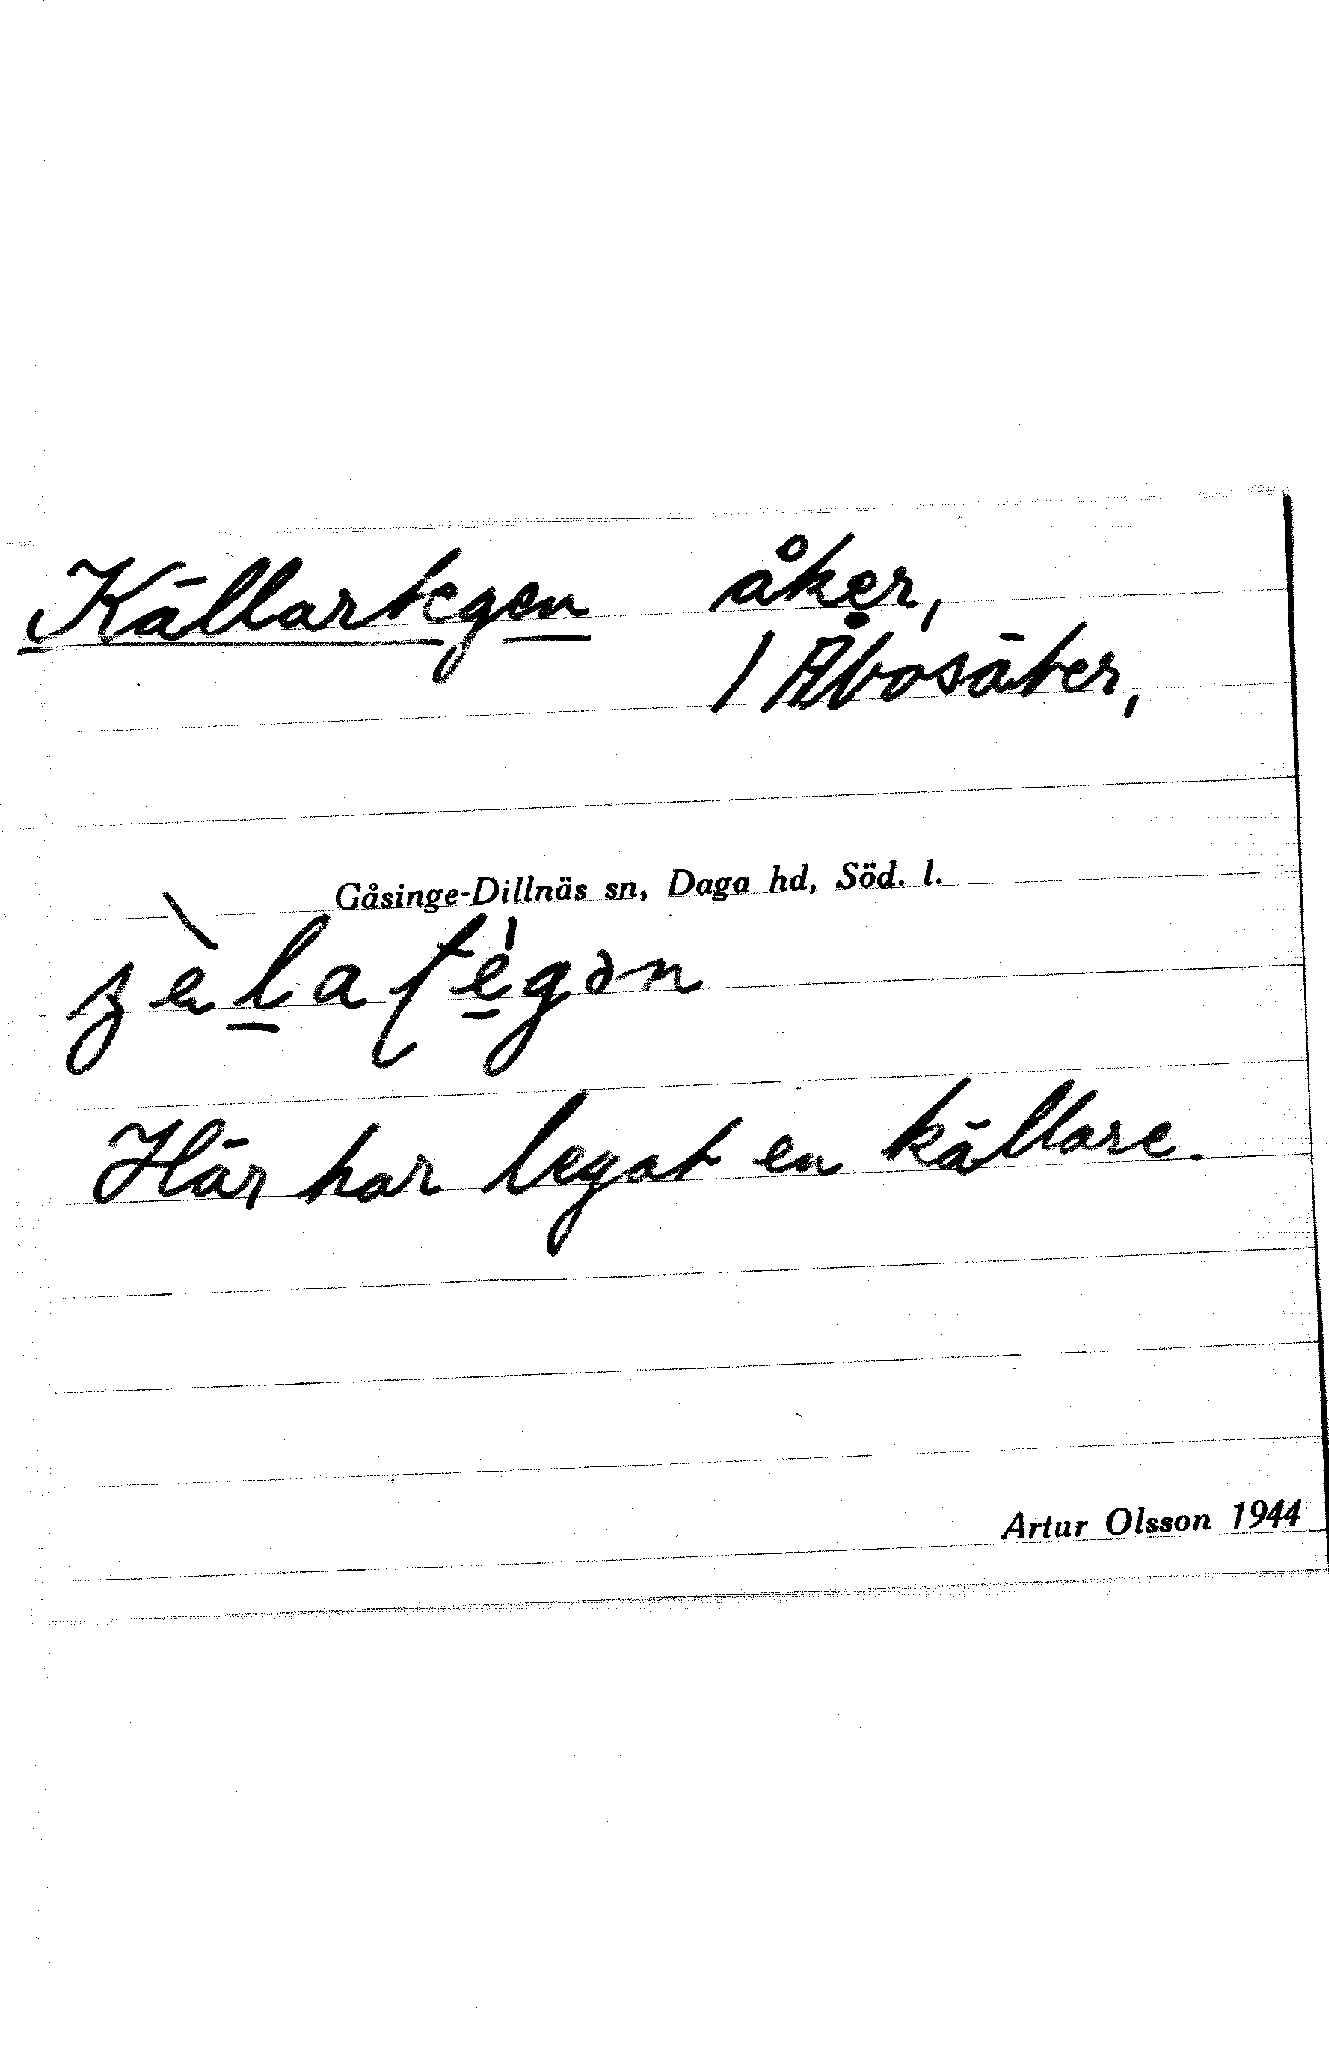 Källartegen åker,
/ Åbosäter,
Gåsinge-Dillnäs sn, Daga hd, Söd. l.
Här har legat en källare.
Artur Olsson 1944